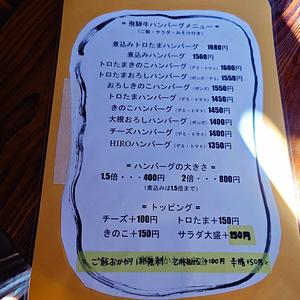 = 飛騨牛ハンバーグメニュー =
(ご飯・サラダ・みそ汁付き)
煮込みトロたまハンバーグ 1680円
煮込みハンバーグ 1560円
トロたまきのこハンバーグ (デミ・トマト) 1600円
トロたまおろしハンバーグ (ポンズ・デミ) 1550円
おろしきのこハンバーグ (ポンズ) 1550円
トロたまハンバーグ (デミ・トマト) 1450円
きのこハンバーグ (デミ・トマト) 1450円
大根おろしハンバーグ (ポンズ) 1400円
チーズハンバーグ (デミ・トマト) 1400円
HIROハンバーグ (デミ・トマト) 1350円
= ハンバーグの大きさ =
1.5倍・・・400円 2倍・・・800円
(煮込みは1.5倍まで)
= トッピング =
チーズ+100円 トロたま+150円
きのこ+150円 サラダ大盛+150円
= ご飯おかわり1杯無料